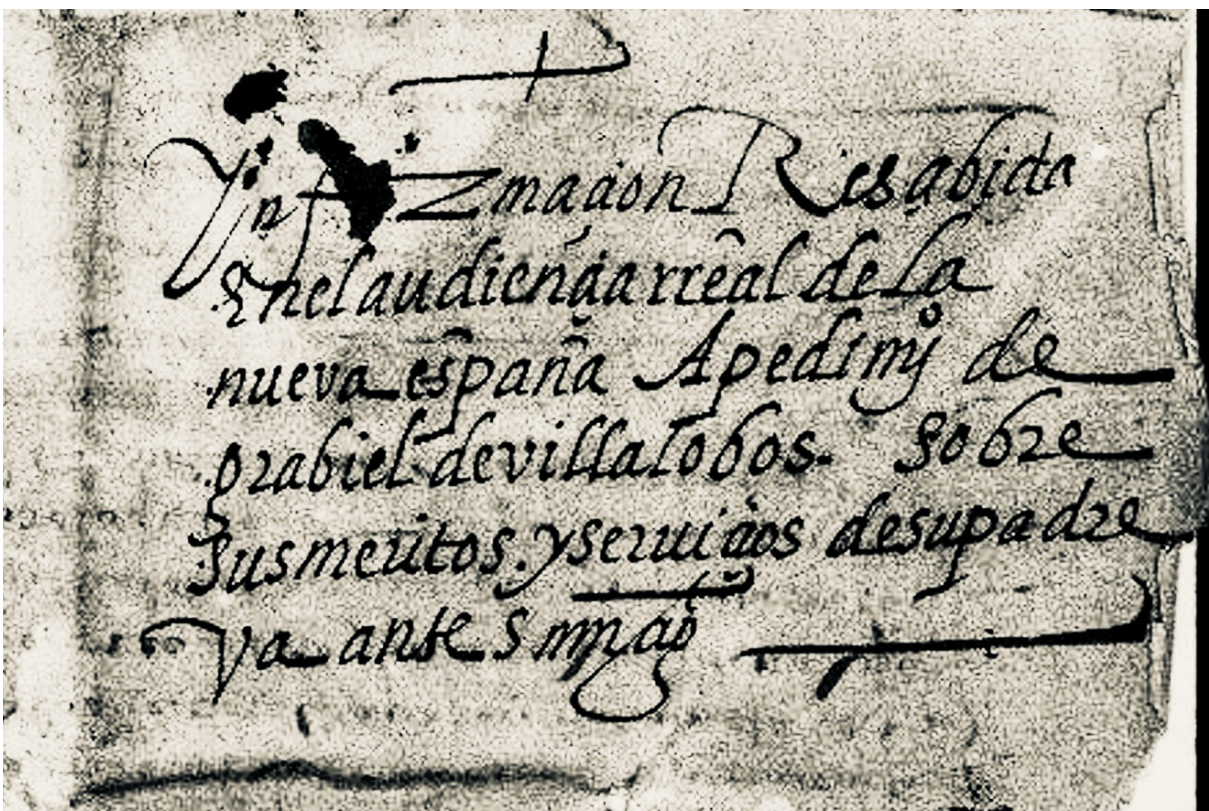 Ynformaçion Resçabida
Enel audiençia rreal de la
nueva españa Apedimi° de
grabiel de villalobos. Sobre
sus meritos. y seruiçios de su padre
Va ante S mag